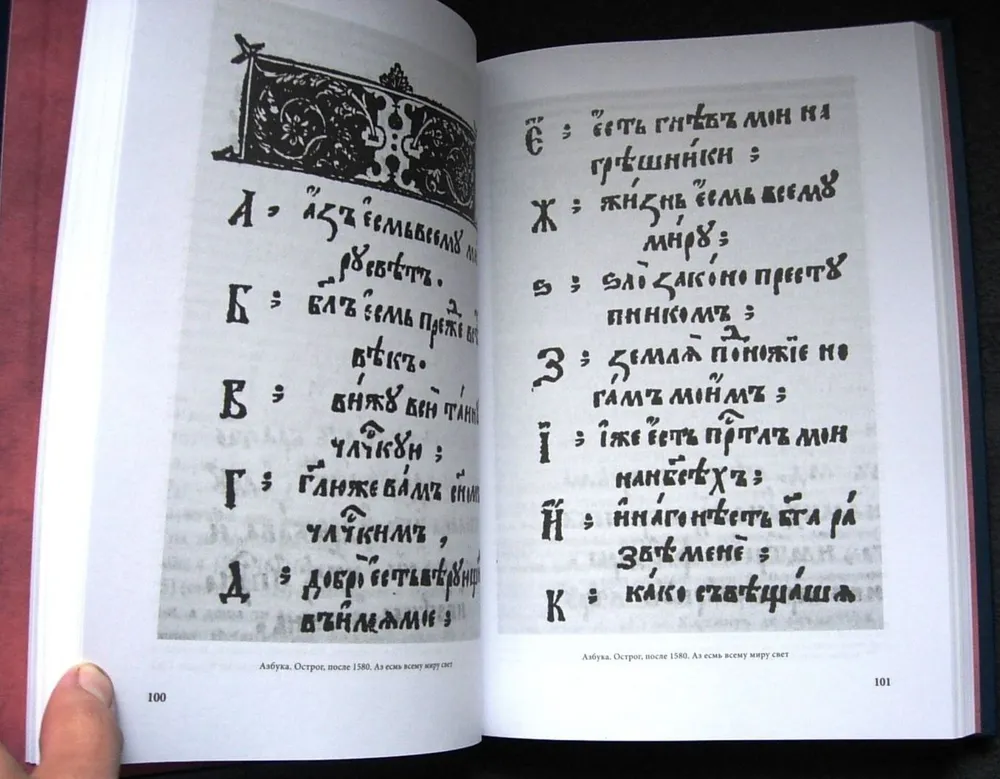 А ; А҆́зъ є҆́смь всемꙋ ми
рꙋ свѣтъ.
Б ; Бг҃ъ є҆́смь преⷤ́є всѣ
вѣкъ.
В ; ви́жꙋ всю̀ та́инꙋ
чл҃ч҇кꙋн ;
Г ; гл҃ю же ва́мъ сн҃ом
чл҃ч҇кимъ ,
Д ; добро̀ є҆сть вѣрꙋющи
въ и҆́мѧ моє ;
Є҆ ; є҆́сть гнѣвъ мои на
грѣ́шники ;
Ж ; жи́знь є҆́смь всемꙋ
ми́рꙋ ;
ѕ ; ѕло̀ зако́но престꙋ
пникомъ ;
З ; землѧ̀ поⷣно́жїе но
га́мъ мои҆̀мъ ;
І҆ ; і҆́же є҆́сть прⷭ҇тлъ мои
на нб҃сѣхъ ;
И҆ ; и҆ ина́го нѣ́сть бг҃а ра
звѣ менѐ ;
К ; ка́ко съвѣща́шѧ
Азбука. Острог, после 1580. Аз есмь всему миру свет
100
Азбука. Острог, после 1580. Аз есмь всему миру свет
101